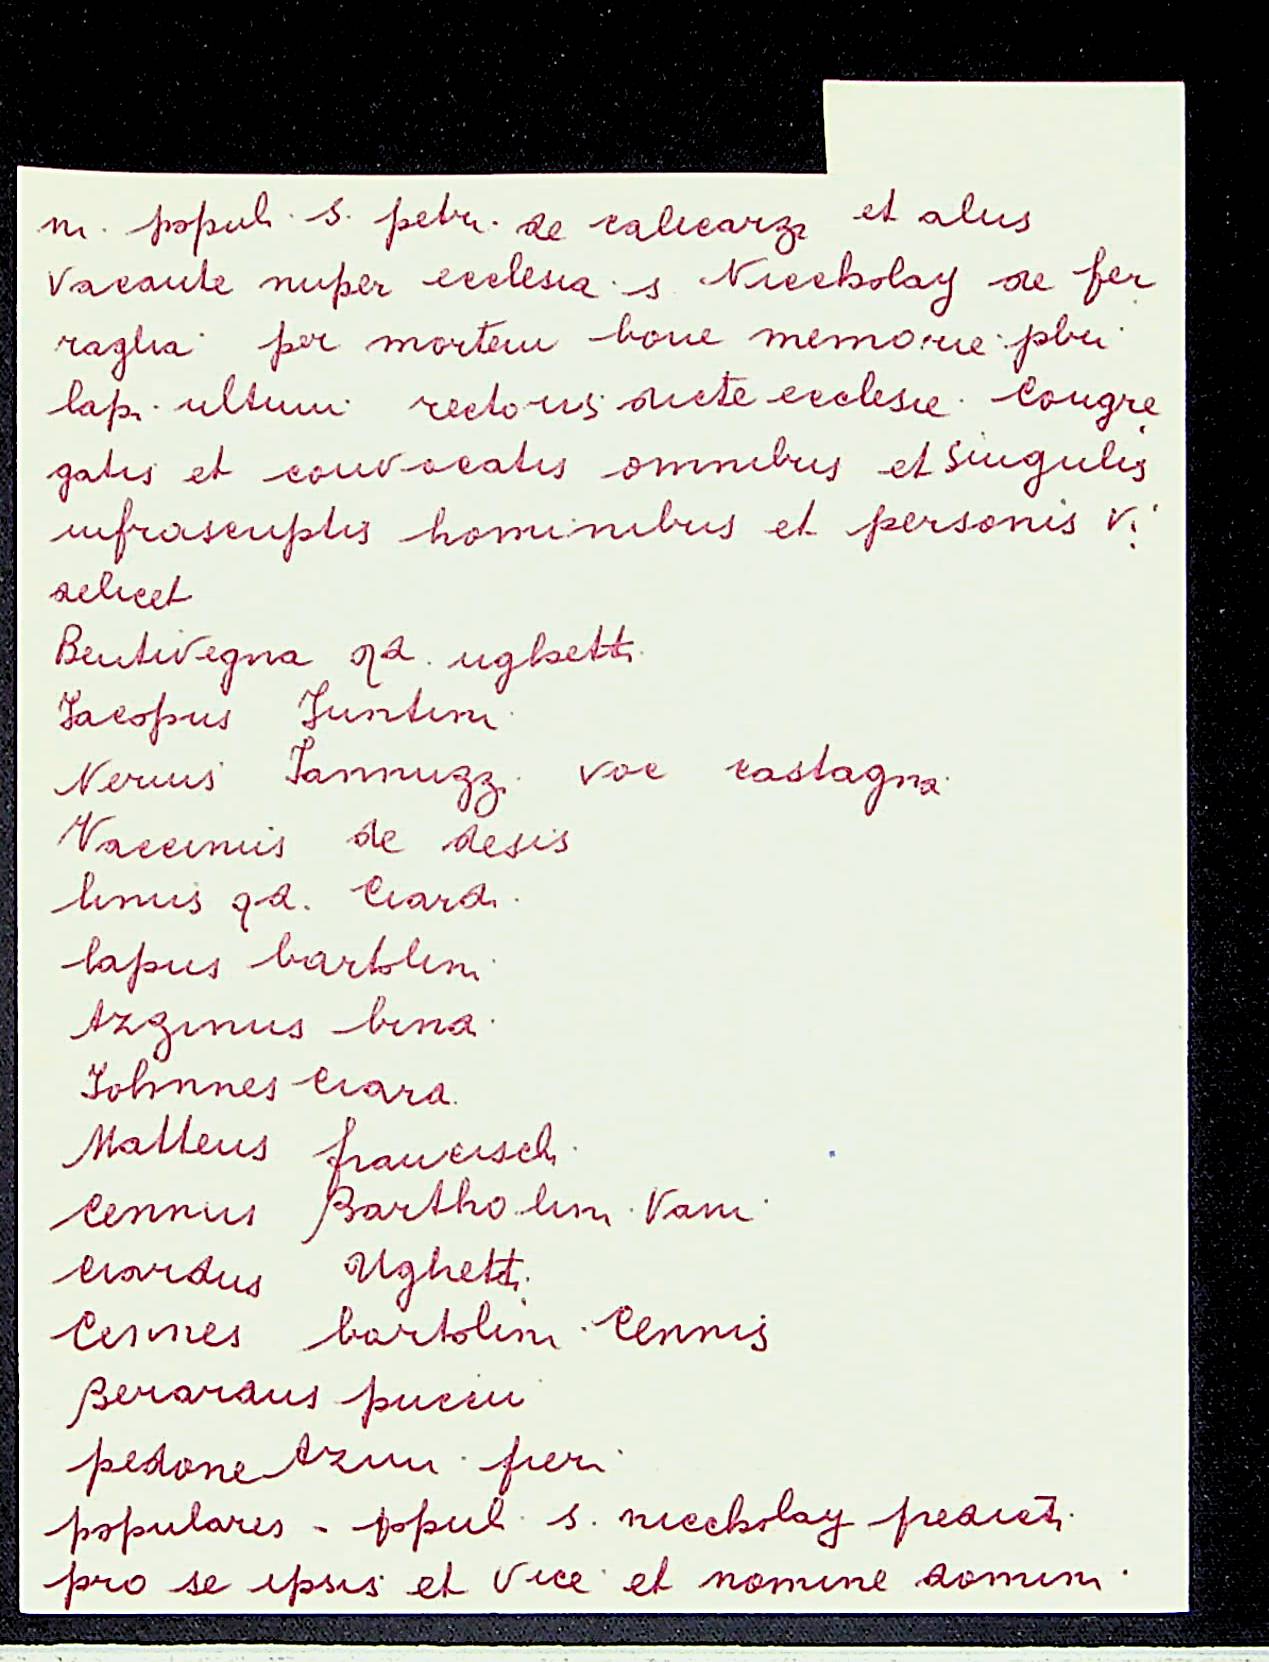 m. populi. s. petri. de calicarzi et aliis
Vacante nuper ecclesia. s Niccholay de fer
raglia per mortem bone memorie pbri
lapi. ultimi rectoris dicte ecclesie. Congre
gatis et convocatis omnibus et singulis
infrascriptis hominibus et personis vi
delicet
Bentivegna qd. ughetti.
Jacopus Juntini
Nerius Jannuzzi. voc castagna
Vaccinus de desis
linus qd. Ciardi.
lapus bartolini
Azzinus bind.
Johnnes Ciard.
Matteus francischi.
Cennus Bartholini. Vani
Ciardus Ughetti.
Cennes bartolini. Cennis
Berardus puccii
pedone Azini. pieri
populares - populi s. niccholay predicti.
pro se ipsis et vice et nomine domini.